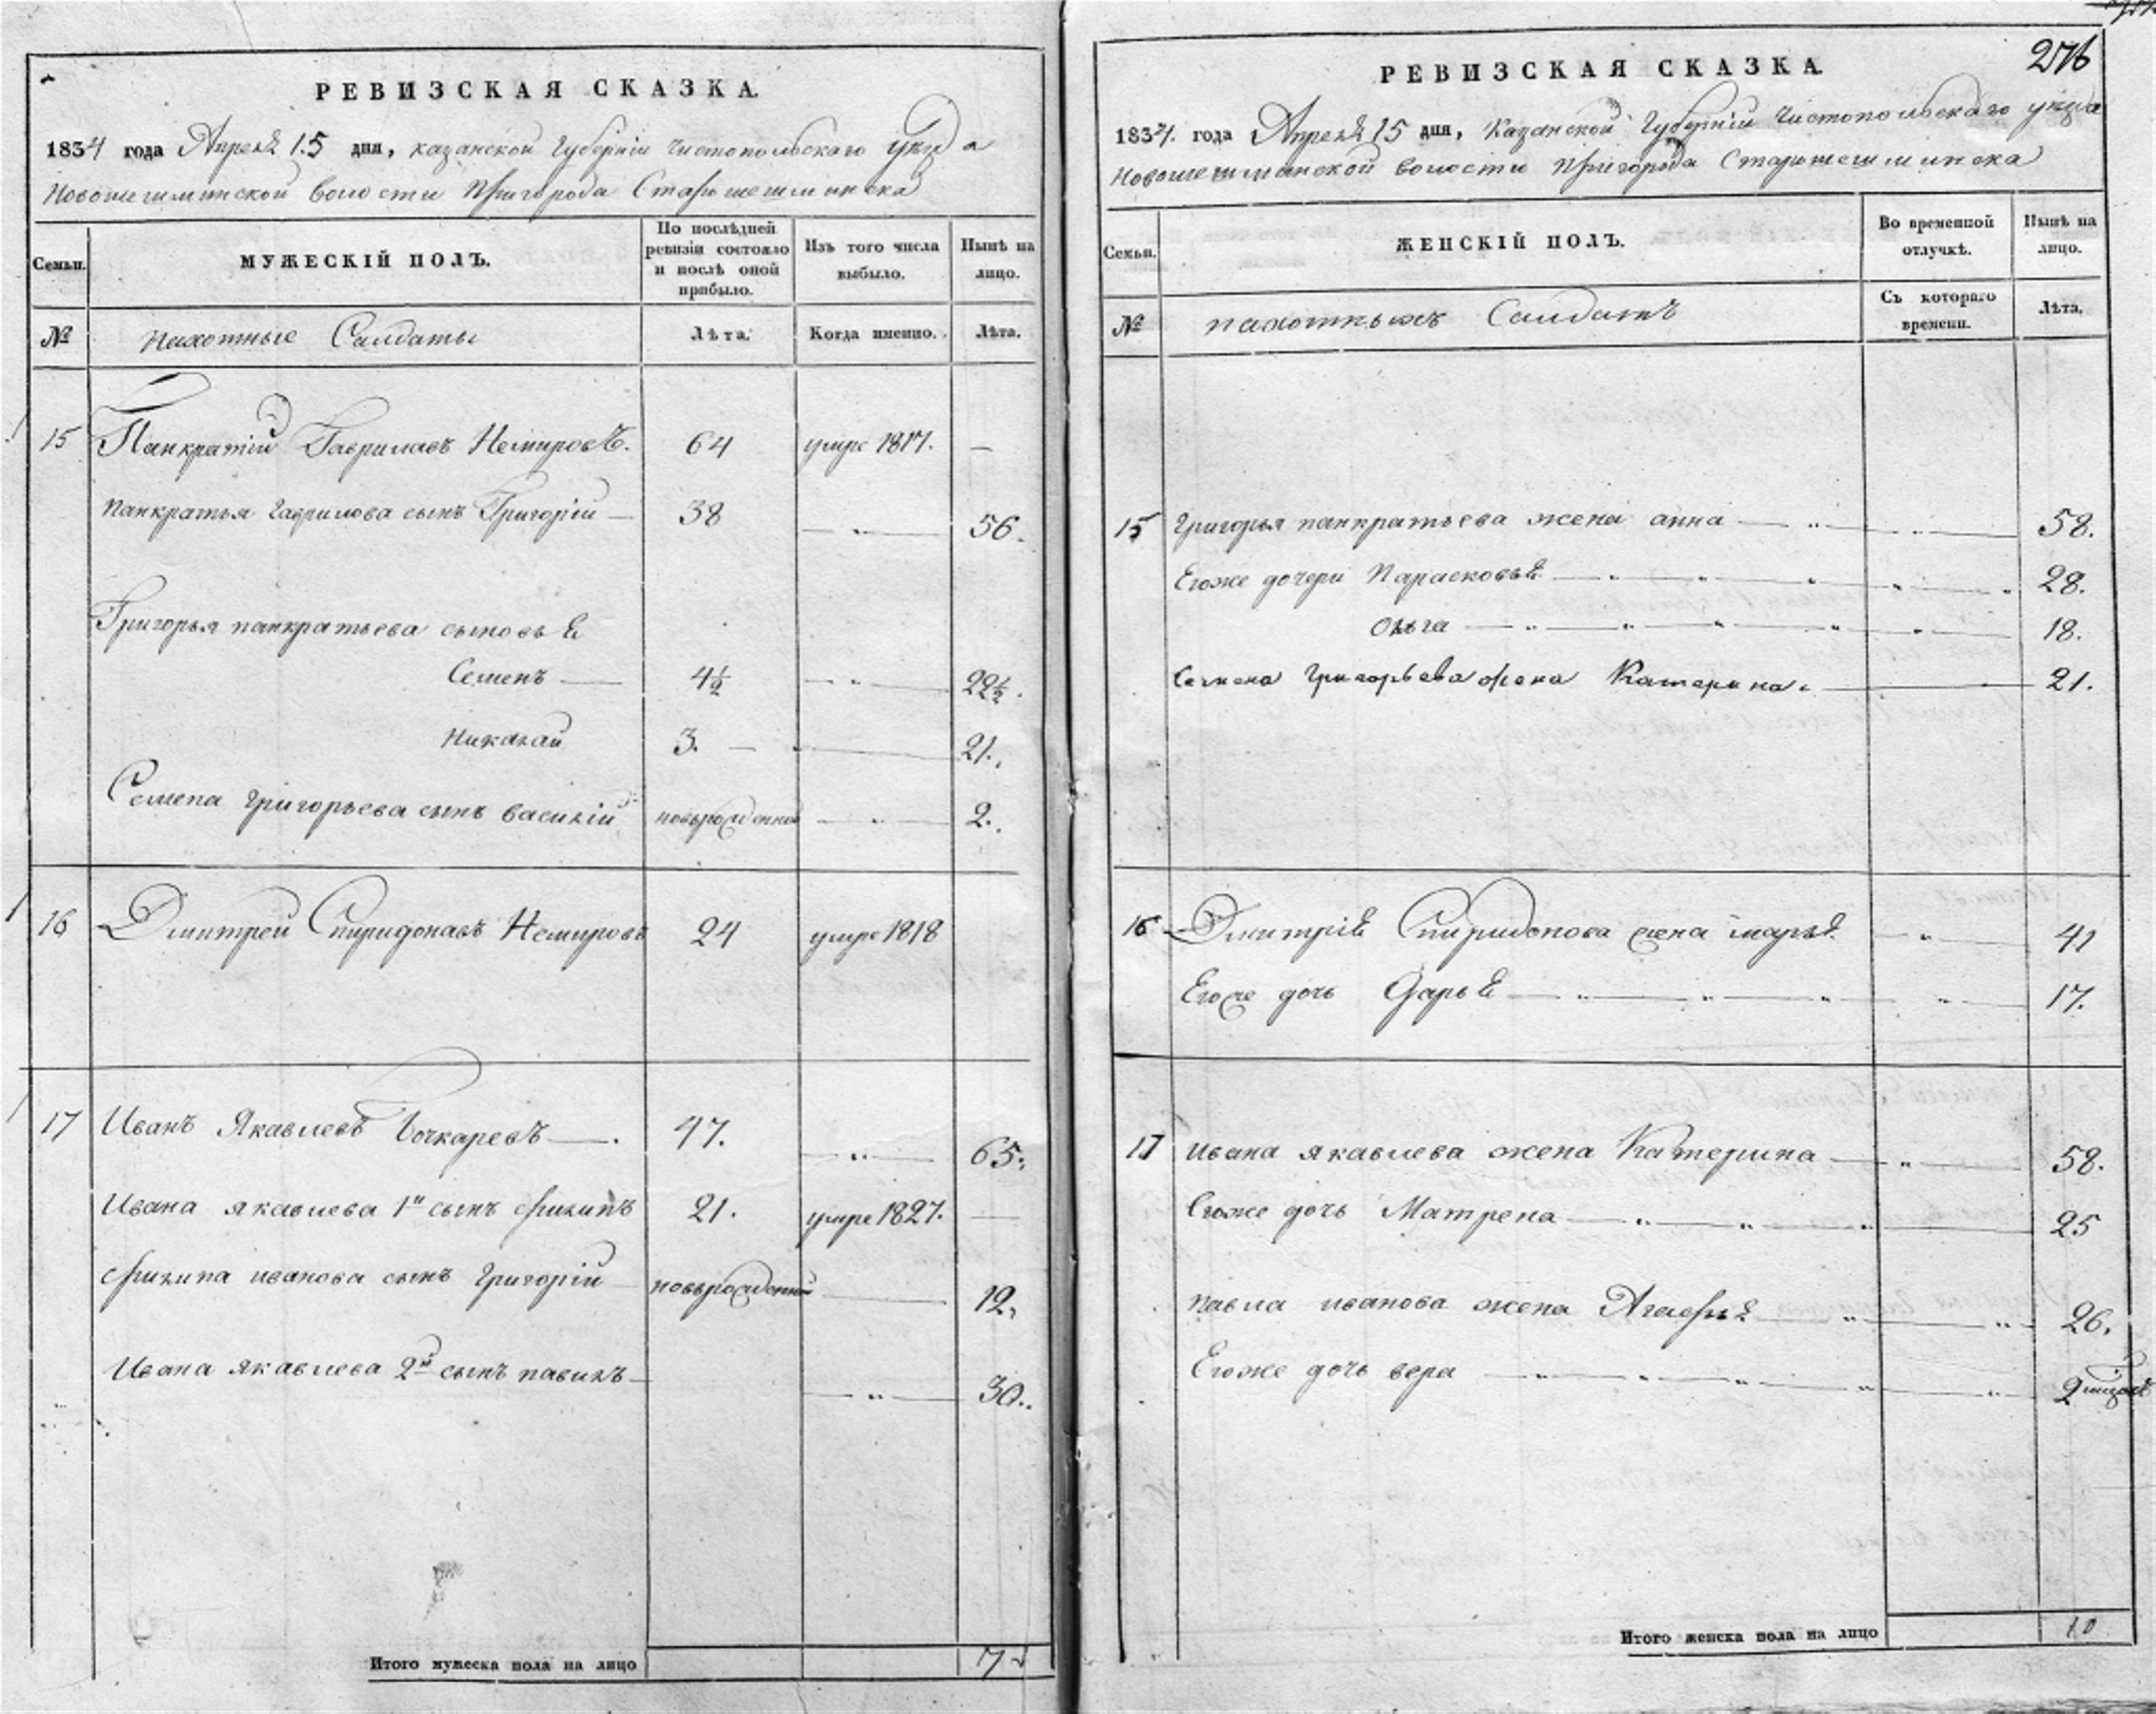 РЕВИЗСКАЯ СКАЗКА
1834 года Апреля 15 дня, казанской Губерніи Чистопольскаго уезда
Новошешминской Волости Пригорода Старошешминска
Семьи.
МУЖЕСКІЙ ПОЛЪ.
По послѣдней ревизіи состояло и послѣ оной прибыло.
Изъ того числа выбыло.
Нынѣ на лицо.
№
Пахотные Салдаты
Лѣта.
Когда именно.
Лѣта.
15 Панкратій Гавриловъ Немировъ. 64 умре 1817. —
Панкратья Гаврилова сынъ Григорій — 38 — „ — 56.
Григорья панкратьева сыновья
Семенъ — 4½ — „ — 22½.
Никалай 3. — „ — 21.
Семена григорьева сынъ василій новорожденный — „ — 2.
16 Дмитрей Спиридонавъ Немировъ 24 умре 1818
17 Иванъ Якавлевъ Бочкаревъ — . 47. — „ — 65.
Ивана якавлева 1й сынъ филипъ 21. умре 1827. —
филипа иванова сынъ григорій новорожденный — 12.
Ивана якавлева 2й сынъ павилъ — — „ — 30.
Итого мужеска пола на лицо 7
276
РЕВИЗСКАЯ СКАЗКА
1834. года Апреля 15 дня, Казанской Губерніи Чистопольскаго уезда
Новошешминской волости Пригорода Старошешминска
Семьи.
ЖЕНСКІЙ ПОЛЪ.
Во временной отлучкѣ.
Нынѣ на лицо.
№
пахотныхъ Салдатъ
Съ котораго времени.
Лѣта.
15 Григорья панкратьева жена анна — „ — 58.
Егоже дочери Парасковья — „ — 28.
Ольга — „ — 18.
Семена Григорьева жена Катерина. — 21.
16 Дмитрія Спиридонова жена марья — „ — 41
Егоже дочь Дарья — „ — 17.
17 ивана якавлева жена Катерина — „ — 58.
Егоже дочь Матрена — „ — 25
павла иванова жена Агафья — „ — 26.
Егоже дочь вера — „ — 2
Итого женска пола на лицо 10